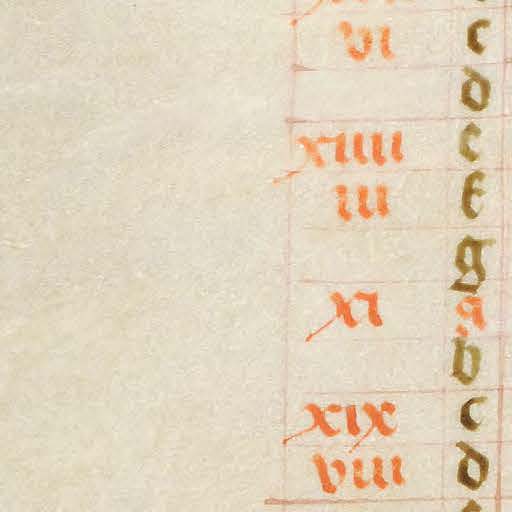 vi c
d
xiiii e
iii f
g
xi a
b
xix c
viii d